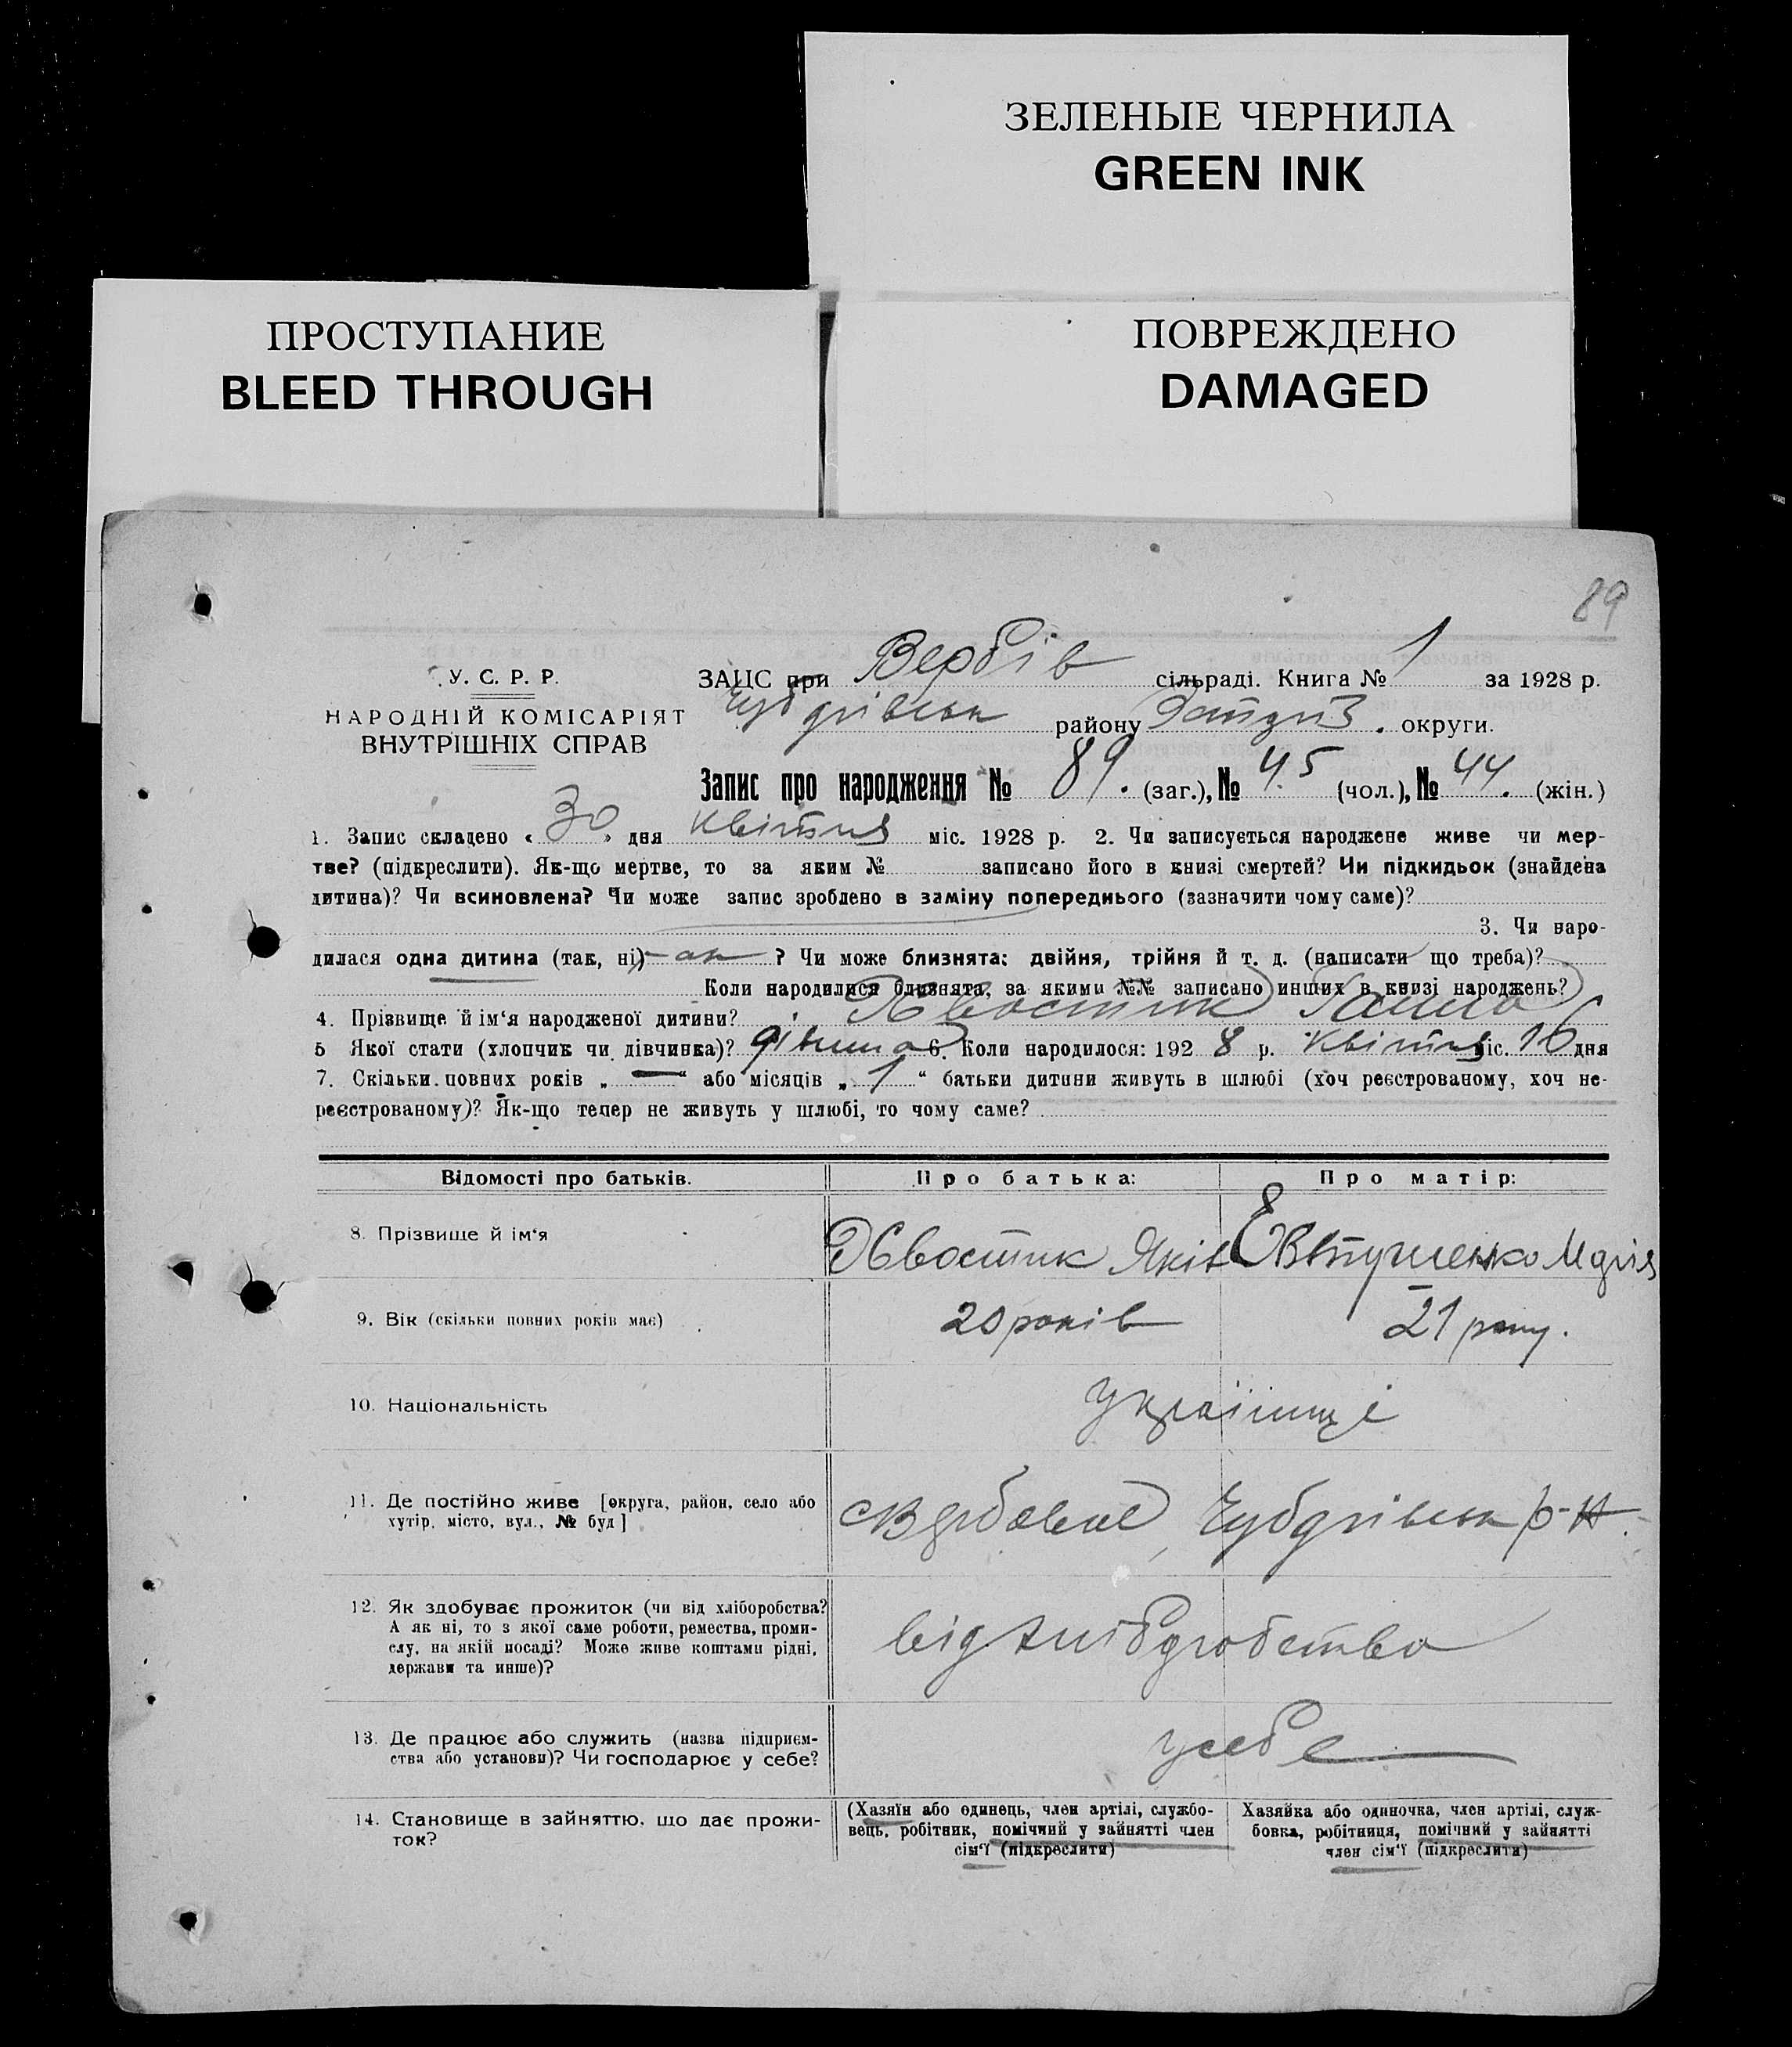 ЗЕЛЕНЫЕ ЧЕРНИЛА
GREEN INK
ПРОСТУПАНИЕ
BLEED THROUGH
ПОВРЕЖДЕНО
DAMAGED
89
У. С. Р. Р.
НАРОДНІЙ КОМІСАРІЯТ
ВНУТРІШНІХ СПРАВ
ЗАЦС при Вербів сільраді. Книга № 1 за 1928 р.
Чубарівськ району Запоріз. округи.
Запис про народження № 89. (заг.), № 45 (чол.), № 44. (жін.)
1. Запис складено « 30 » дня квітня міс. 1928 р. 2. Чи записується народжене живе чи мер-
тве? (підкреслити). Як-що мертве, то за яким № записано його в книзі смертей? Чи підкидьок (знайдена
дитина)? Чи всиновлена? Чи може запис зроблено в заміну попереднього (зазначити чому саме)?
3. Чи наро-
дилася одна дитина (так, ні) ? Чи може близнята: двійня, трійня й т. д. (написати що треба)?
Коли народилися близнята, за якими №№ записано инших в книзі народжень?
4. Прізвище й ім‘я народженої дитини? Хвостик Ганна
5 Якої стати (хлопчик чи дівчинка)? дівчина 6. Коли народилося: 192 8 р. Квітня міс. 16 дня
7. Скільки повних років „ — “ або місяців „ 1 “ батьки дитини живуть в шлюбі (хоч реєстрованому, хоч не-
реєстрованому)? Як-що тепер не живуть у шлюбі, то чому саме?
Відомості про батьків. Про батька: Про матір:
8. Прізвище й ім‘я Хвостик Яків Євтушенко Марія
9. Вік (скільки повних років має) 20 років 21 року.
10. Національність Українці
11. Де постійно живе [округа, район, село або
хутір, місто, вул., № буд]
с Вербове, Чубарівськ р-н
12. Як здобуває прожиток (чи від хліборобства?
А як ні, то з якої саме роботи, ремества, проми-
слу, на якій посаді? Може живе коштами рідні,
держави та инше)?
від хліборобства
13. Де працює або служить (назва підприєм-
ства або установи)? Чи господарює у себе?
у себе
14. Становище в зайняттю, що дає прожи-
ток?
(Хазяїн або одинець, член артілі, службо-
вець, робітник, помічний у зайнятті член
сім‘ї (підкреслити)
Хазяйка або одиночка, член артілі, служ-
бовка, робітниця, помічний у зайнятті
член сім‘ї (підкреслити)